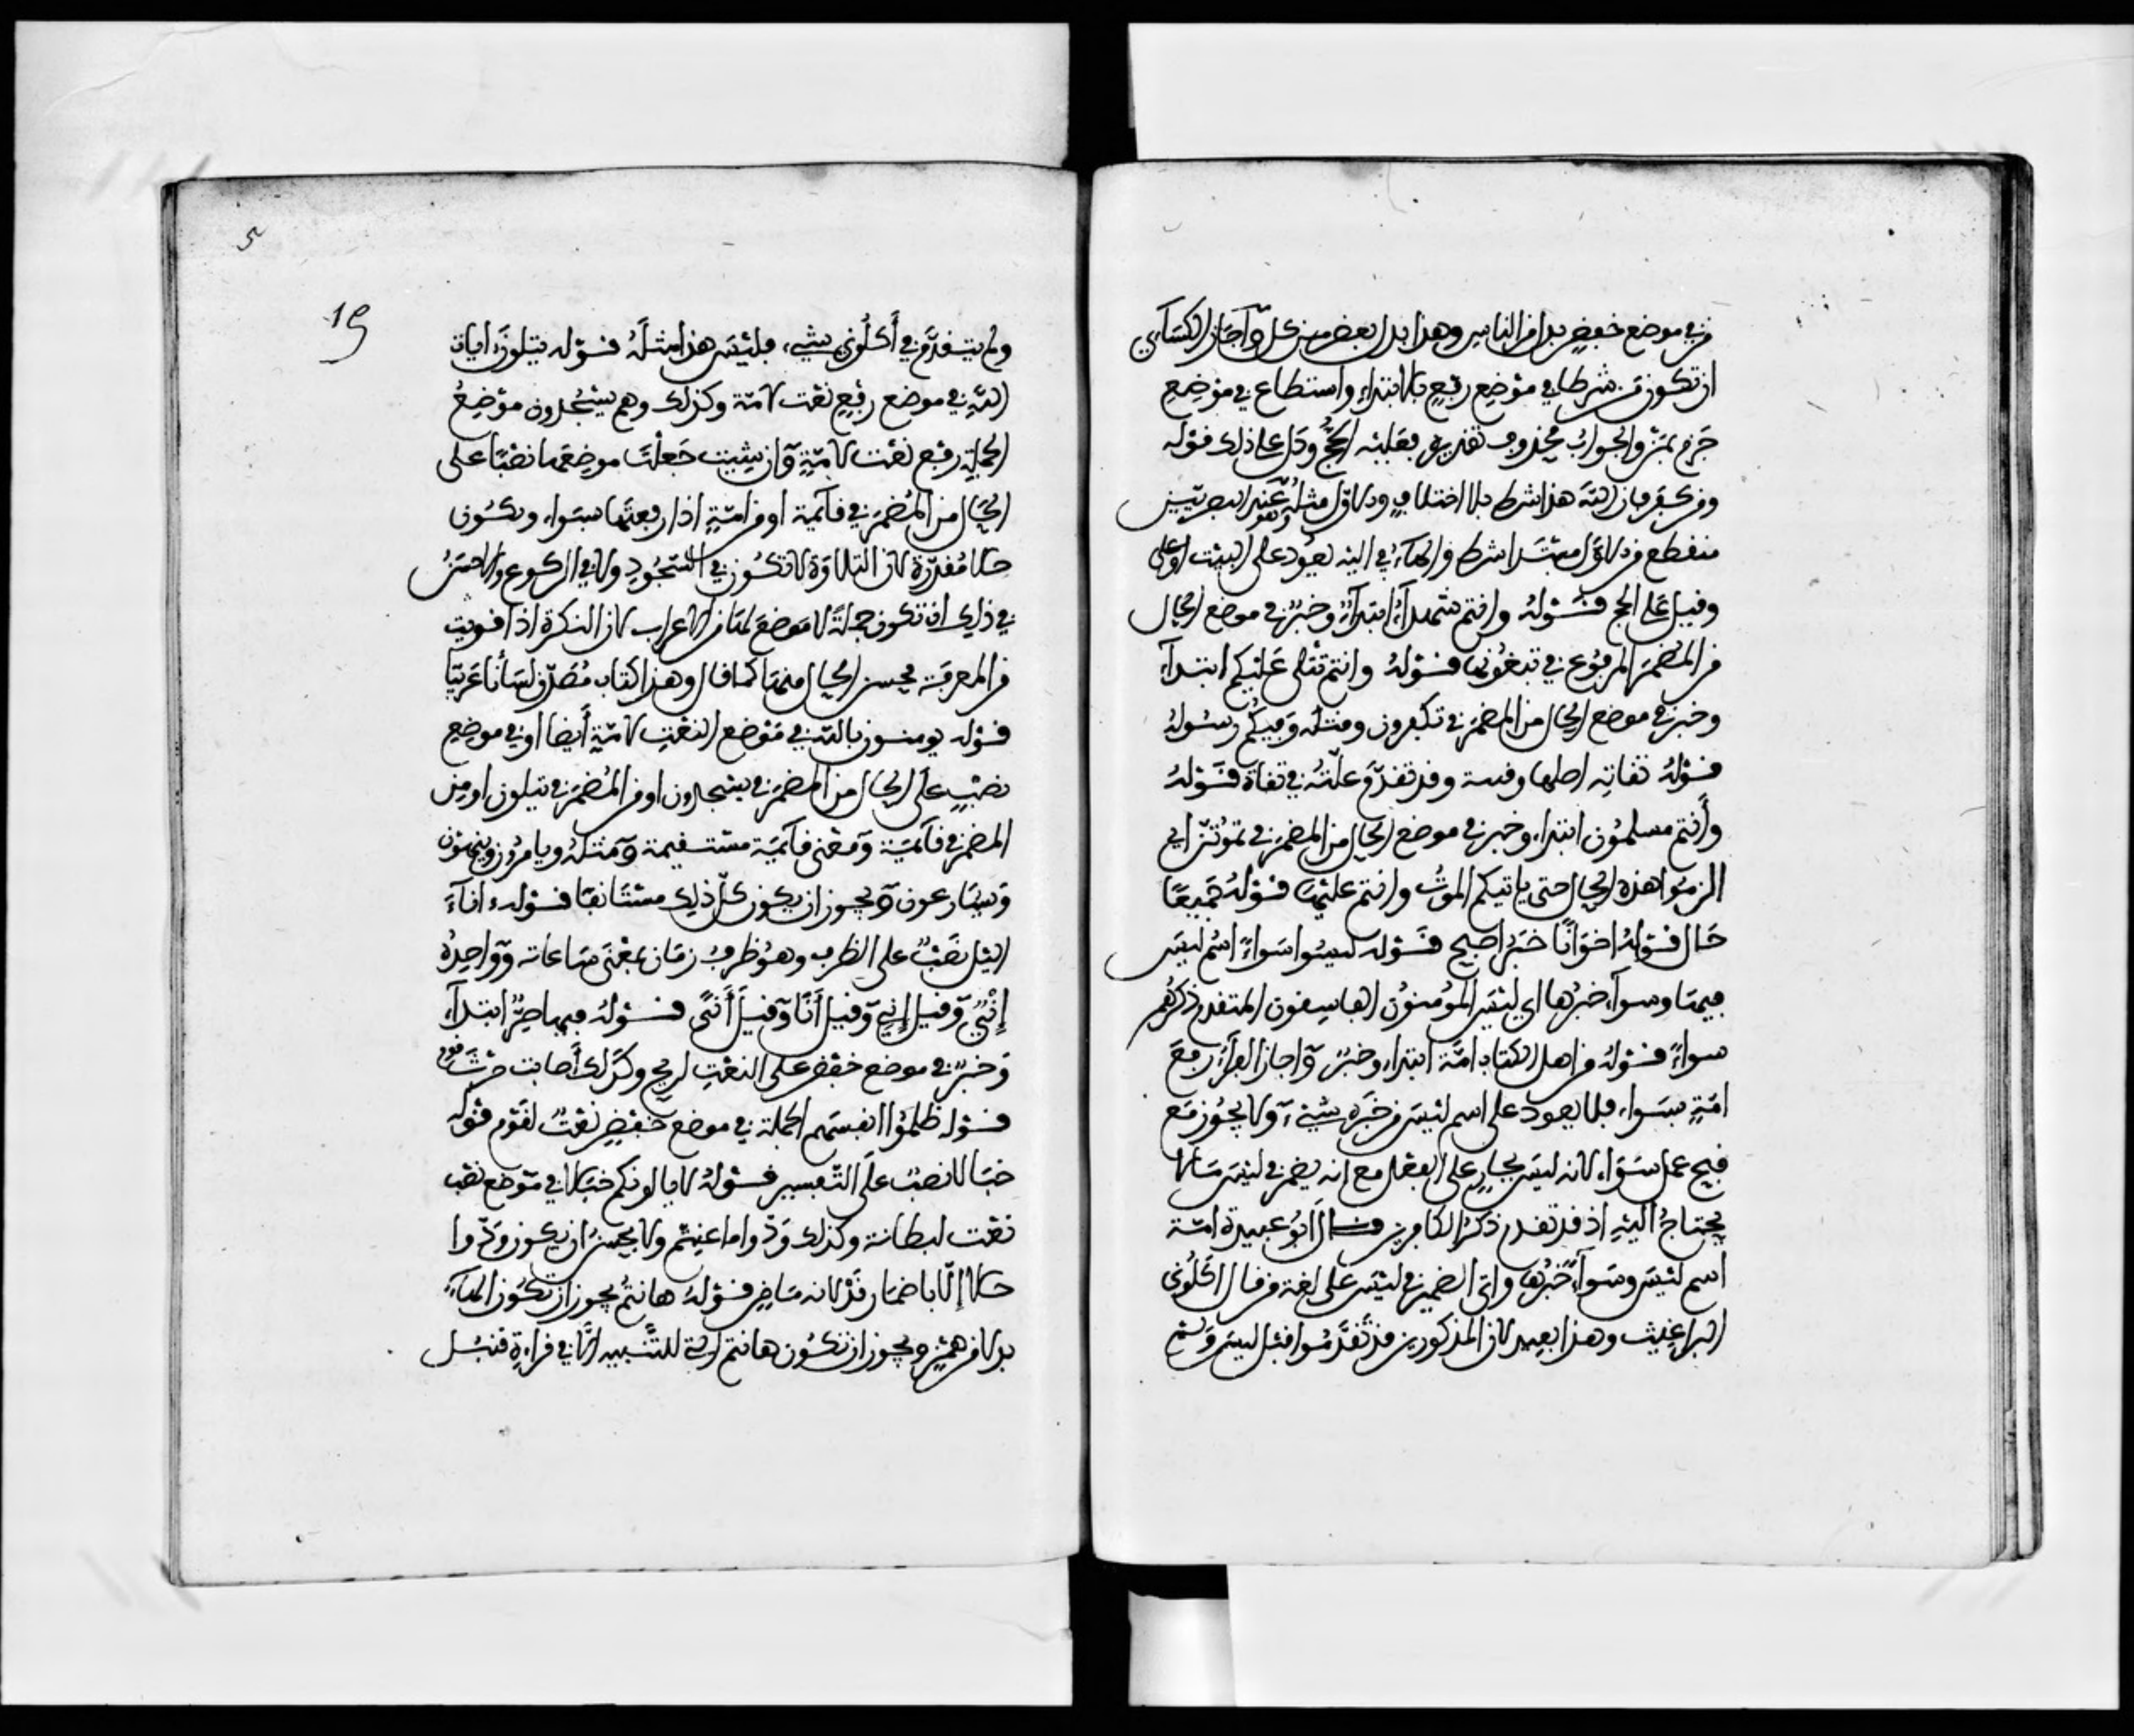 من في موضع خفض بدل من الناس وهذا بدل بعض من كل وآجاز الكسآءي
ان تكون من شرطا في موضع رفع بالابتداء واستطاع في موضع
جزم بمن والجواب محذوف تقديره فعليه الحج ودل على ذلك قوله
ومن كفر فان الله هذا شرط بلا اختلاف والاول مثله وهو عند البصريين
منقطع من الاول مبتدا شرط والهآء في اليه تعود على البيت او على
وقيل على الحج قوله وانتم شهدآء ابتدآء وخبر في موضع الحال
من المضمر المرفوع في تبغونها قوله وانتم تتلى عليكم ابتدآء
وخبر في موضع الحال من المضمر في تكفرون ومثله وفيكم رسوله
قوله تقاته اصلها وقية وقد تقدم علته في تقاة قوله
وأنتم مسلمون ابتداء وخبر في موضع الحال من المضمر في تموتن اي
الزموا هذه الحال حتى ياتيكم الموت وانتم عليها قوله جميعا
حال قوله اخوانا خبر اصبح قوله ليسوا سواء اسم ليس
فيها وسوآء خبرها اي ليس المؤمنون والفاسقون المتقدم ذكرهم
سواء قوله من اهل الكتاب امة ابتداء وخبر وآجاز الفرآء رفع
امة بسواء فلا يعود على اسم ليس من خبره شيء ولا يجوز مع
قبح عمل سواء لانه ليس بجار على الفعل مع انه يضمر في ليس ما لا
يحتاج اليه اذ قد تقدم ذكر الكافرين قال ابو عبيدة امة
اسم ليس وسوآء خبرها واتى الضمير في ليس على لغة من قال اكلوني
البراغيث وهذا بعيد لان المذكورين قد تقدموا قبل ليس ولم
5
19
ولم يتقدم في أكلوني شيء فليس هذا مثله قوله يتلون ايات
الله في موضع رفع نعت لامة وكذلك وهم يسجدون موضع
الجملة رفع نعت لامة وان شيت جعلت موضعها نصبا على
الحال من المضمر في قآئمة او من امة اذا رفعتها بسواء وتكون
حالا مقدرة لان التلاوة لا تكون في السجود ولا في الركوع والاحسن
في ذلك ان تكون جملة لا موضع لها من الاعراب لان النكرة اذا قربت
من المعرفة يحسن الحال منها كما قال وهذا كتاب مصدق لسانا عربيا
قوله يومنون بالله في موضع النعت لامة أيضا او في موضع
نصب على الحال من المضمر في يسجدون او من المضمر في يتلون او من
المضمر في قآئمة ومعنى قآئمة مستقيمة ومثله ويامرون وينهون
ويسارعون ويجوز ان يكون كل ذلك مستانفا قوله اناء
اليل نصب على الظرف وهو ظرف زمان بمعنى ساعاته وواحده
إنْي وقيل إني وقيل أنا وقيل أنى قوله فيها صر ابتدآء
وخبر في موضع خفض على النعت لريح وكذلك أصابت حرث قوم
قوله ظلموا انفسهم الجملة في موضع خفض نعت لقوم قوله
خبالا نصب على التفسير قوله لا يالونكم خبالا في موضع نصب
نعت لبطانة وكذلك ودوا ما عنتم ولا يحسن ان يكون ودوا
حالا إلا باضمار قد لانه ماض قوله هانتم يجوز ان تكون الهآء
بدلا من همزة ويجوز ان تكون ها التي للتنبيه الا في قراءة قنبل